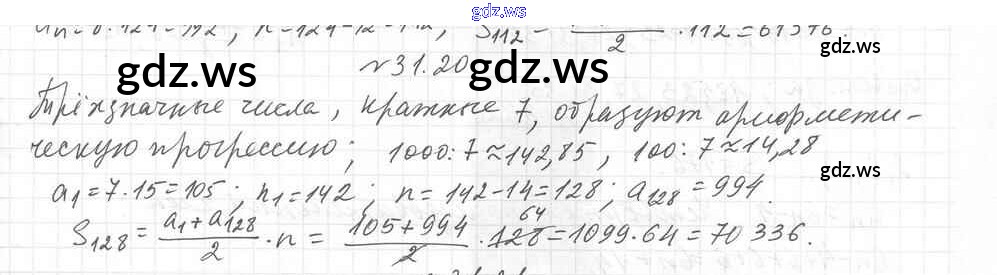 gdz.ws
aₙ = 8·124 = 992; n = 124 - 12 = 112; S₁₁₂ = ———/2 · 112 = 61376.
gdz.ws
№31.20
gdz.ws
Трёхзначные числа, кратные 7, образуют арифмети-
ческую прогрессию; 1000:7≈142,85, 100:7≈14,28
gdz.ws
a₁=7·15=105; n₁=142; n=142-14=128; a₁₂₈=994.
S₁₂₈ = (a₁+a₁₂₈)/2 · n = (105+994)/2 · 128 64 = 1099·64 = 70 336.
gdz.ws
gdz.ws
gdz.ws